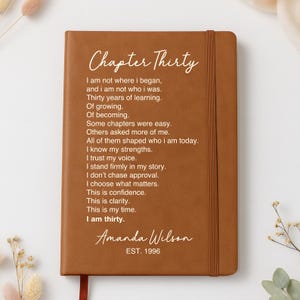 Chapter Thirty
I am not where i began,
and i am not who i was.
Thirty years of learning.
Of growing.
Of becoming.
Some chapters were easy.
Others asked more of me.
All of them shaped who i am today.
I know my strengths.
I trust my voice.
I stand firmly in my story.
I don't chase approval.
I choose what matters.
This is confidence.
This is clarity.
This is my time.
I am thirty.
Amanda Wilson
EST. 1996